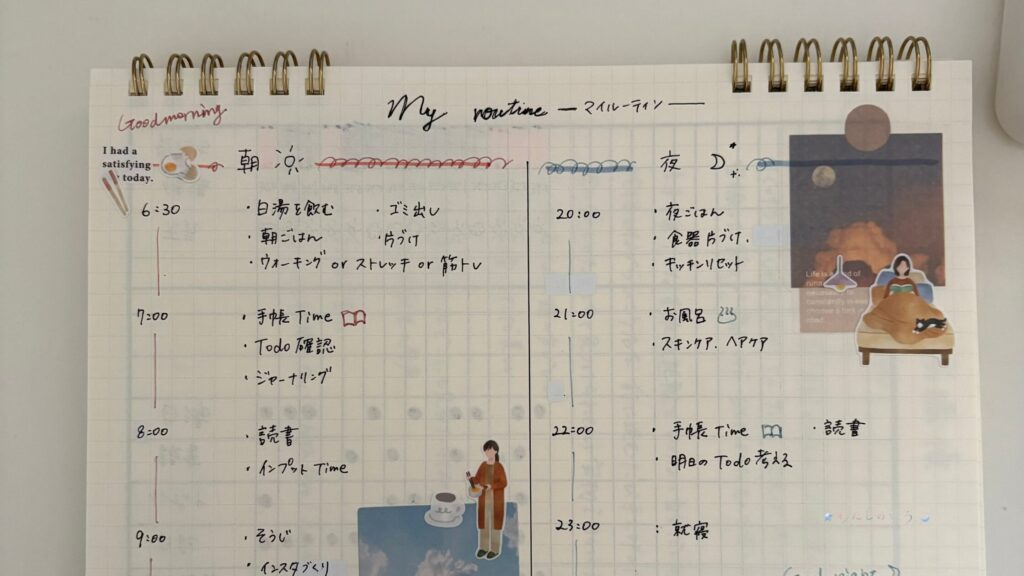 My routine — マイルーティン —
Goodmorning
I had a
satisfying
today.
朝
6:30
・白湯を飲む ・ゴミ出し
・朝ごはん ・片づけ
・ウォーキング or ストレッチ or 筋トレ
7:00
・手帳 Time
・Todo 確認
・ジャーナリング
8:00
・読書
・インプット Time
9:00
・そうじ
・インスタづくり
夜
20:00
・夜ごはん
・食器片づけ、
・キッチンリセット
21:00
・お風呂
・スキンケア、ヘアケア
22:00
・手帳 Time ・読書
・明日の Todo 考える
23:00
: 就寝
Life is a kind of